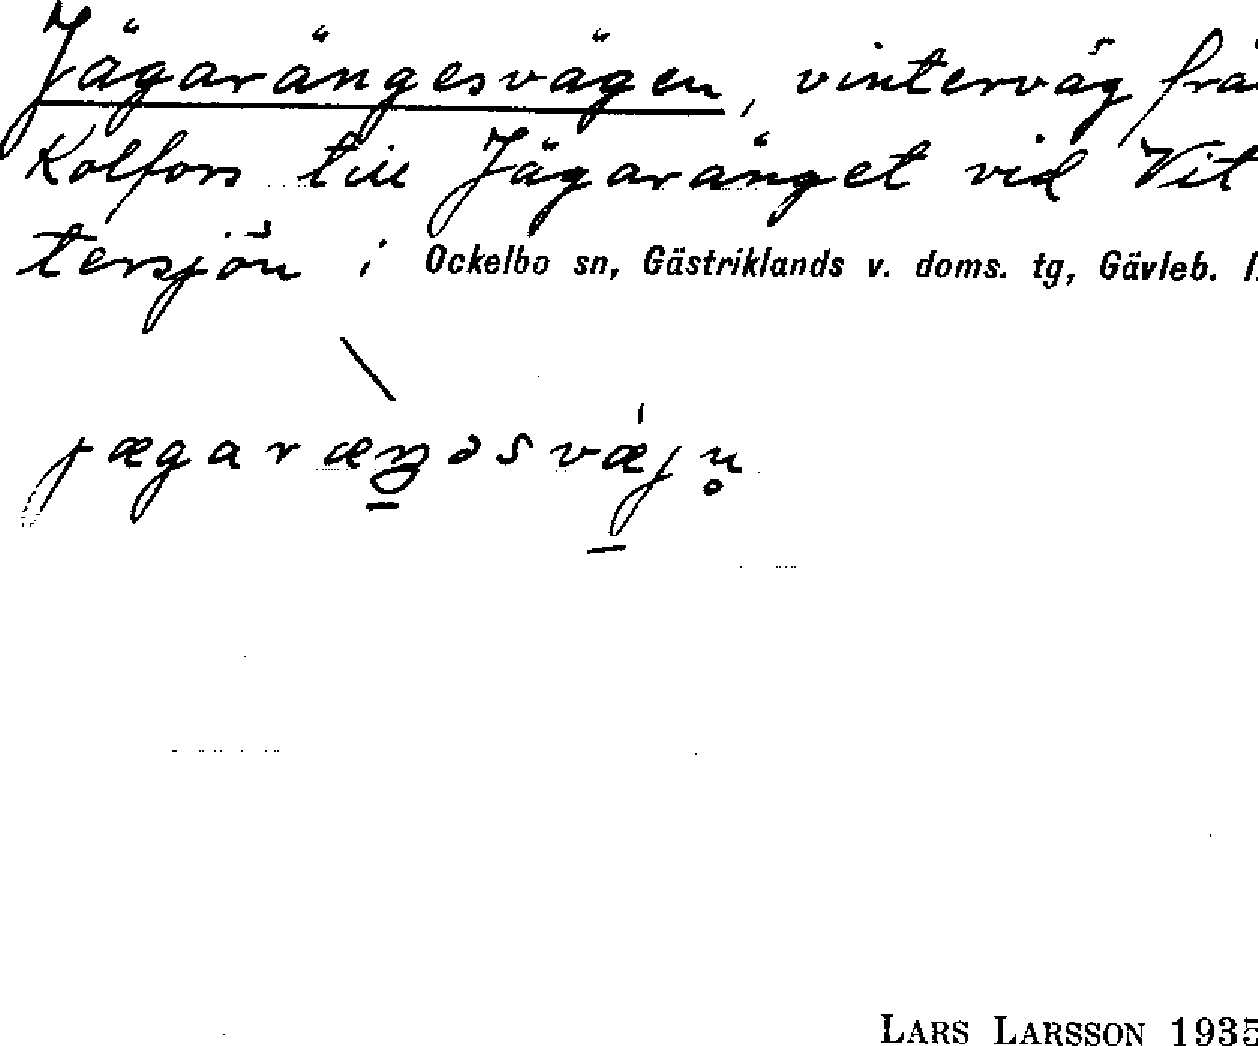 Jägarängesvägen, vinterväg frå
Kolfors till Jägaränget vid Vit
tersjön i Ockelbo sn, Gästriklands v. doms. tg, Gävleb. l.
jægaræŋəsvæjn̥
LARS LARSSON 1935